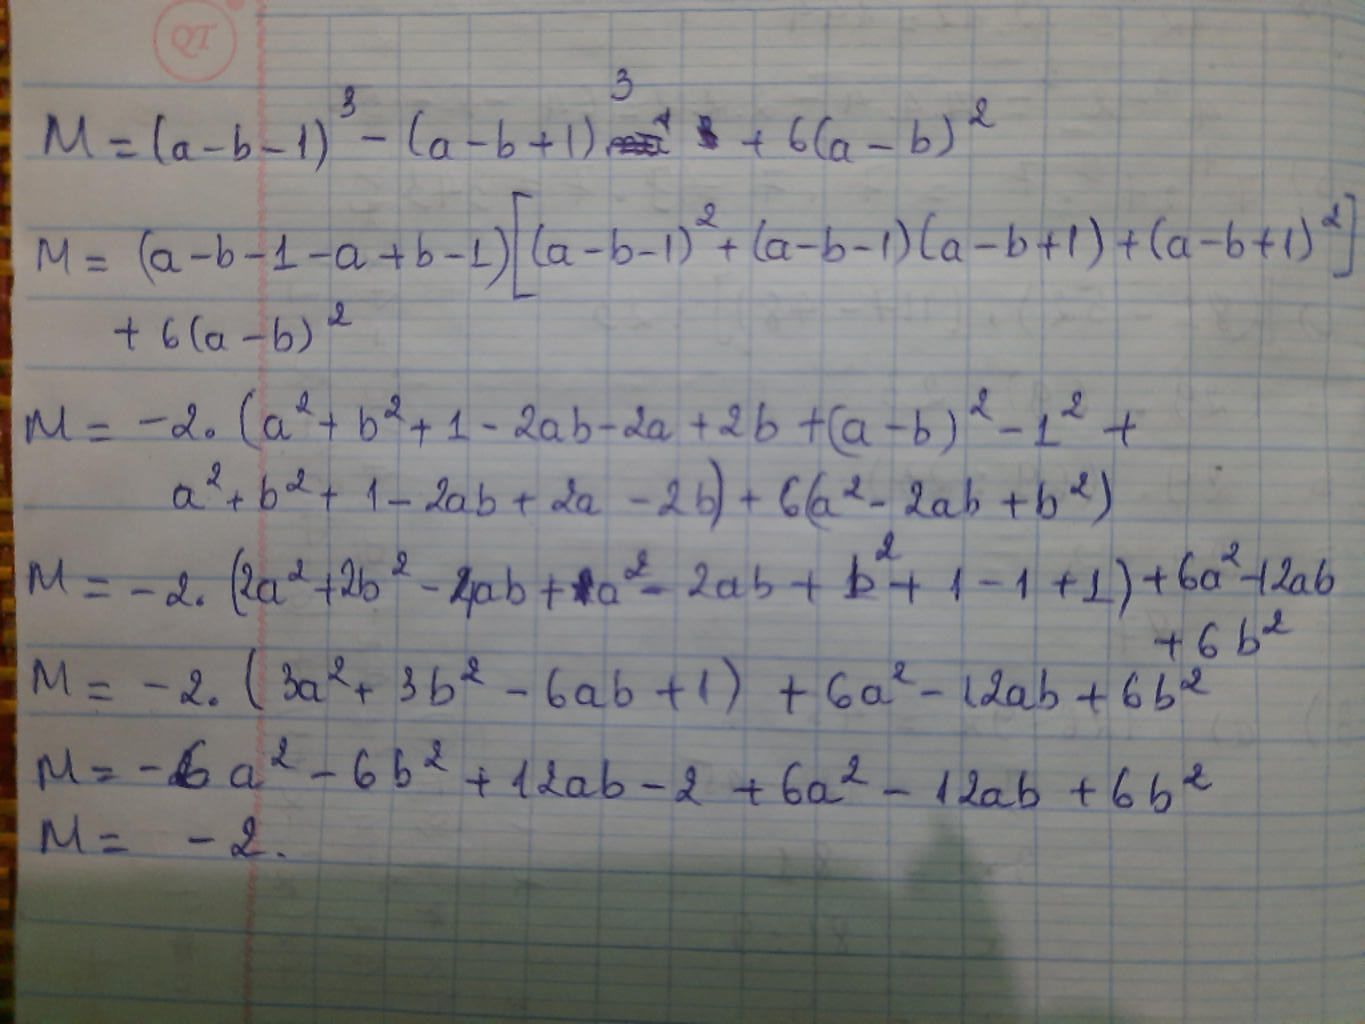 QT
M = (a - b - 1)³ - (a - b + 1)³ + 6(a - b)²
M = (a - b - 1 - a + b - 1)[(a - b - 1)² + (a - b - 1)(a - b + 1) + (a - b + 1)²]
+ 6(a - b)²
M = -2. (a² + b² + 1 - 2ab - 2a + 2b + (a - b)² - 1² +
a² + b² + 1 - 2ab + 2a - 2b) + 6(a² - 2ab + b²)
M = -2. (2a² + 2b² - 4ab + a² - 2ab + b² + 1 - 1 + 1) + 6a² - 12ab
+ 6b²
M = -2. (3a² + 3b² - 6ab + 1) + 6a² - 12ab + 6b²
M = -6a² - 6b² + 12ab - 2 + 6a² - 12ab + 6b²
M = -2.